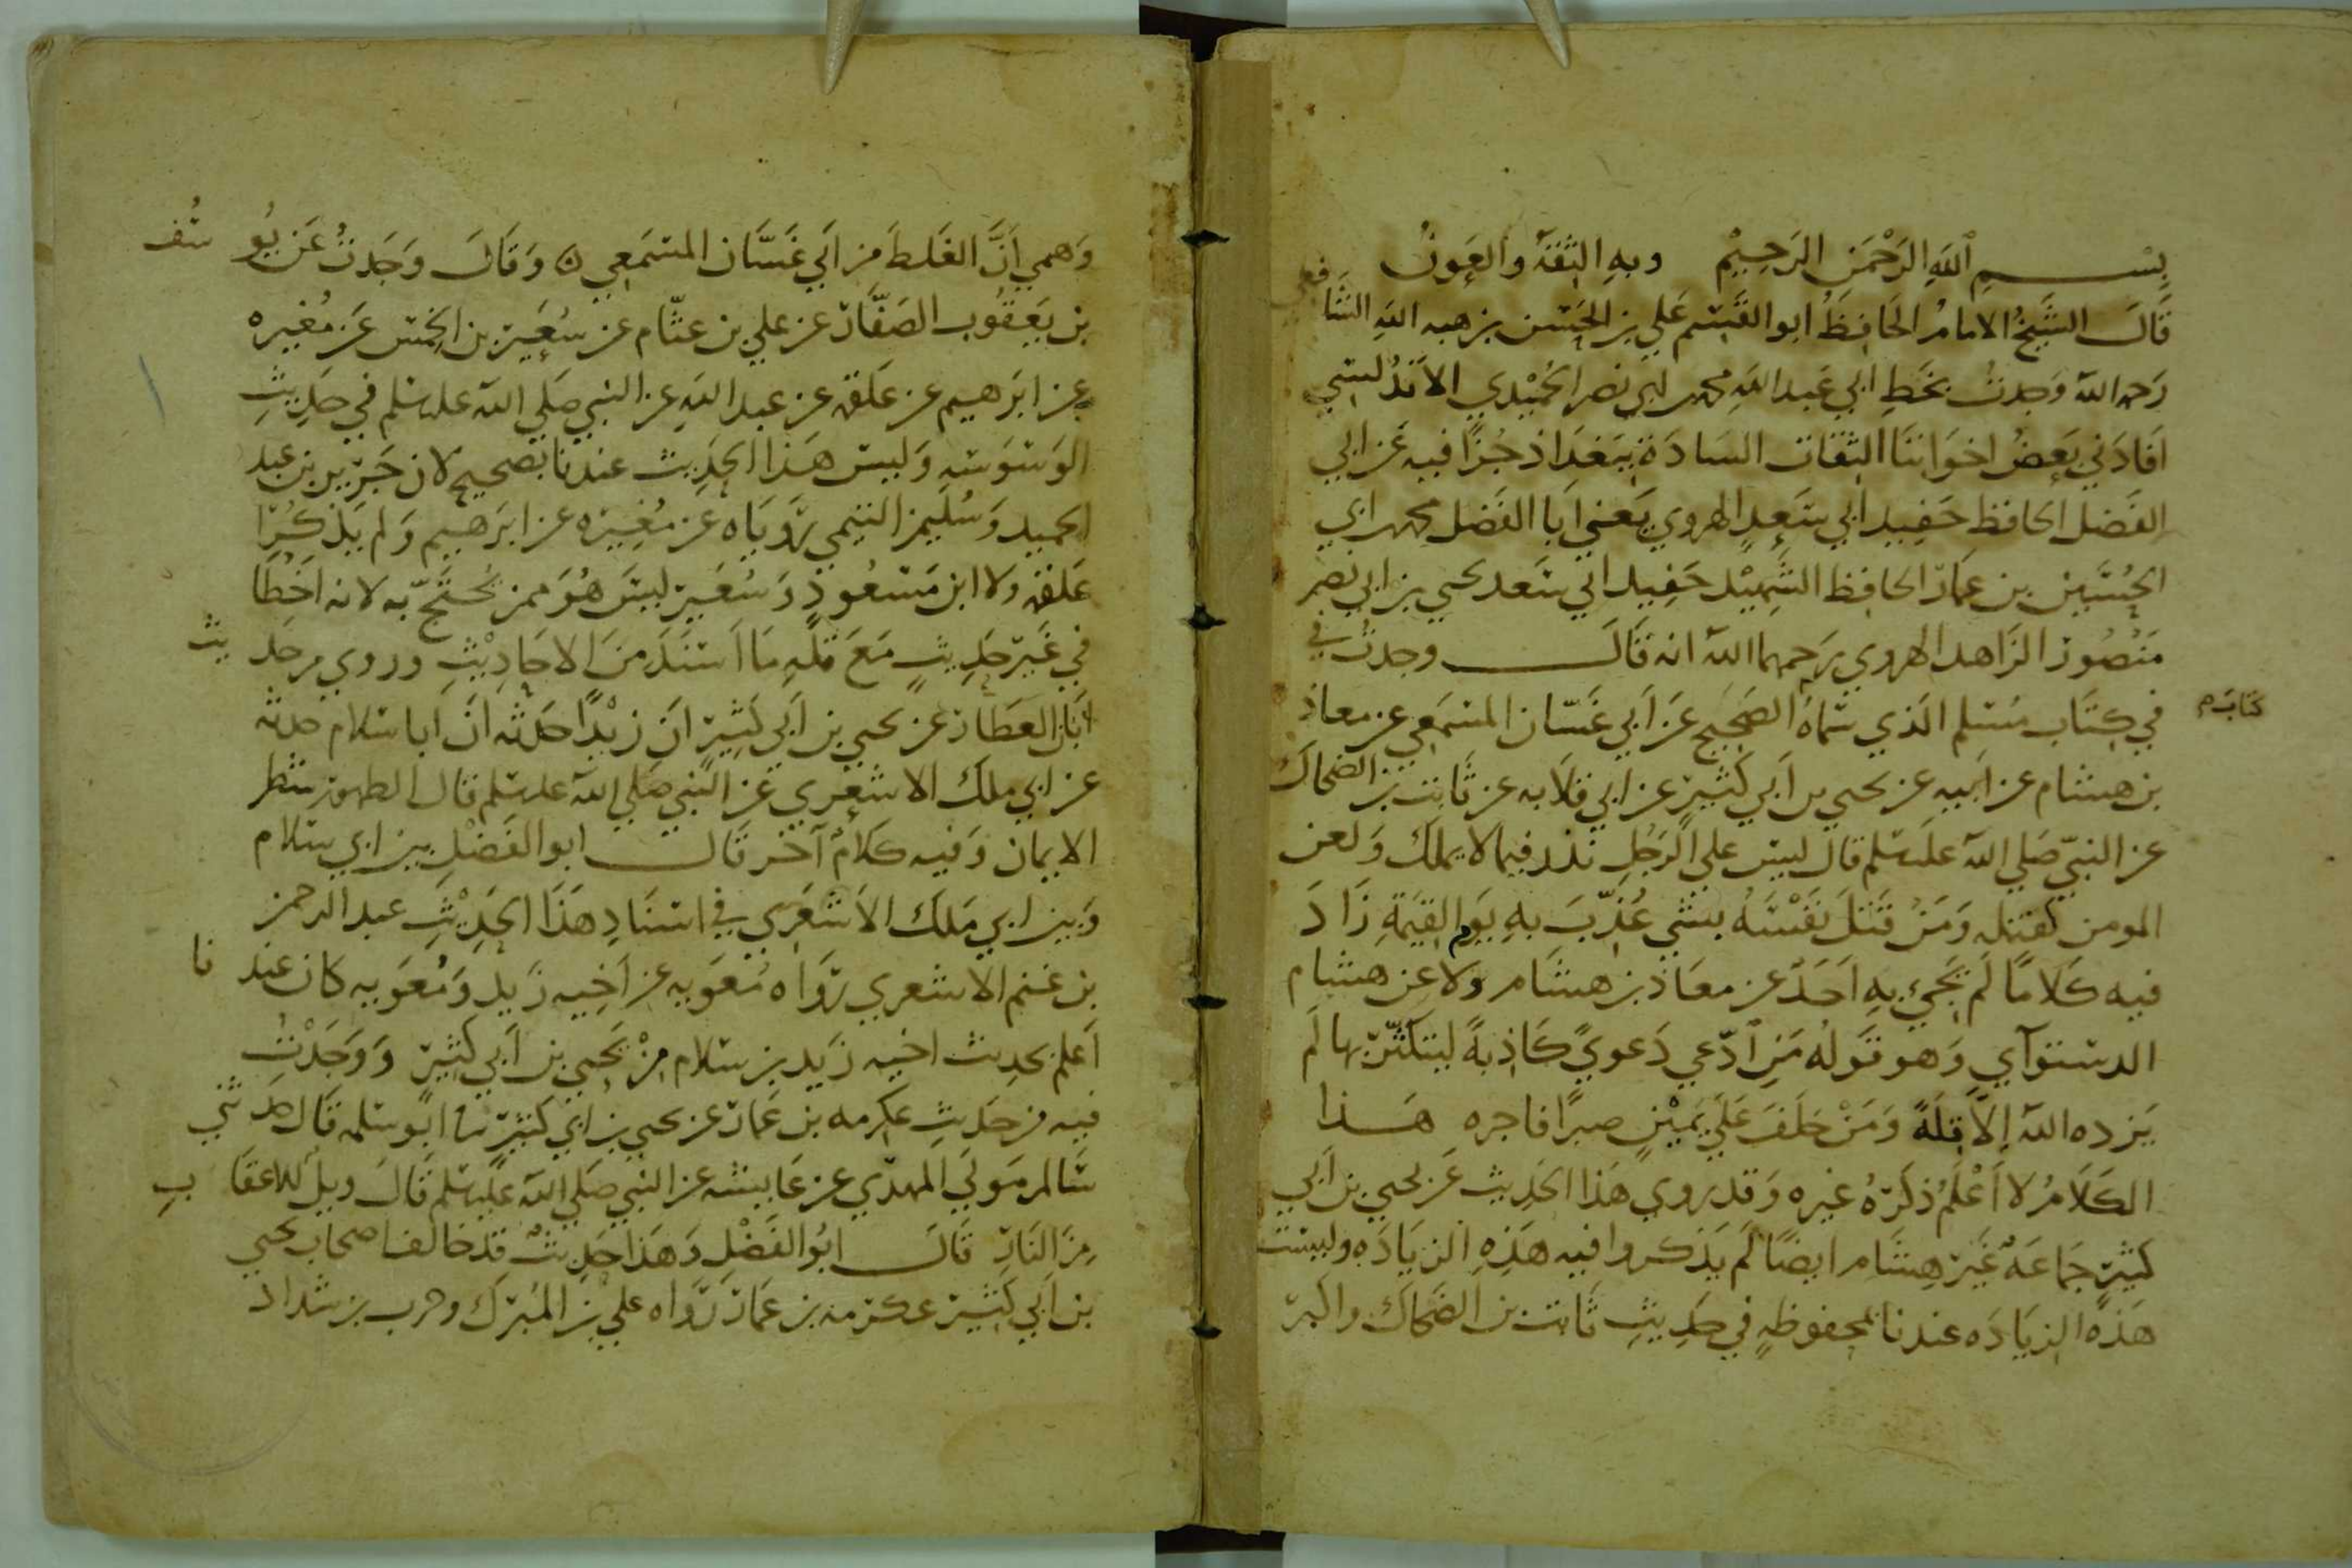 بسم الله الرحمن الرحيم وبه الثقة والعون
قال الشيخ الامام الحافظ ابو القسم علي بن الحسن بن هبه الله الشافعي
رحمه الله وجدت بخط ابي عبد الله محمد بن ابي نصر الحميدي الاندلسي
افادني بعض اخواننا الثقات السادة ببغداذ جزا فيه عن ابي
الفضل الحافظ حفيد ابي سعد الهروي يعني ابا الفضل محمد بن ابي
الحسين بن عمار الحافظ الشهيد حفيد ابي سعد يحيى بن ابي نصر
منصور الزاهد الهروي رحمهما الله انه قال وجدت في
في كتاب مسلم الذي سماه الصحيح عن ابي غسان المسمعي عن معاذ
كتاب م
بن هشام عن ابيه عن يحيى بن ابي كثير عن ابي قلابه عن ثابت بن الضحاك
عن النبي صلى الله عليه وسلم قال ليس على الرجل نذر فيما لا يملك ولعن
المومن كقتله ومن قتل نفسه بشي عذب به يوم القيمة زاد
فيه كلاما لم يجئ به احد عن معاذ بن هشام ولا عن هشام
الدستوآي وهو قوله من ادعى دعوى كاذبة ليتكثر بها لم
يزده الله الا قلة ومن حلف على يمين صبرا فاجره هذا
الكلام لا اعلم ذكره غيره وقد روى هذا الحديث عن يحيى بن ابي
كثير جماعة غير هشام ايضا لم يذكروا فيه هذه الزياده وليست
هذه الزياده عندنا بمحفوظه في حديث ثابت بن الضحاك واكبر
وهمي ان الغلط من ابي غسان المسمعي ۞ وقال وجدت عن يوسف
بن يعقوب الصفار عن علي بن عثام عن سعير بن الخمس عن مغيره
عن ابرهيم عن علقمه عن عبد الله عن النبي صلى الله عليه وسلم في حديث
الوسوسه وليس هذا الحديث عندنا بصحيح لان جرير بن عبد
الحميد وسليمن التيمي روياه عن مغيره عن ابرهيم ولم يذكرا
علقمه ولا ابن مسعود وسعير ليس هو ممن يحتج به لانه اخطا
في غير حديث مع قله ما اسند من الاحاديث وروى من حديث
ابان العطار عن يحيى بن ابي كثير ان زيدا حدثه ان ابا سلام حدثه
عن ابي ملك الاشعري عن النبي صلى الله عليه وسلم قال الطهور شطر
الايمان وفيه كلام آخر قال ابو الفضل بين ابي سلام
وبين ابي ملك الاشعري في اسناد هذا الحديث عبد الرحمن
بن غنم الاشعري رواه معويه عن اخيه زيد ومعويه كان عندنا
اعلم بحديث اخيه زيد بن سلام من يحيى بن ابي كثير ووجدت
فيه من حديث عكرمه بن عمار عن يحيى بن ابي كثير نا ابو سلمه قال حدثني
سالم مولى المهري عن عايشه عن النبي صلى الله عليه وسلم قال ويل للاعقاب
من النار قال ابو الفضل وهذا حديث قد خالف اصحاب يحيى
بن ابي كثير عكرمه بن عمار رواه علي بن المبرك وحرب بن شداد